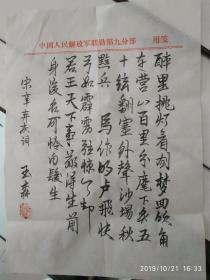 中国人民解放军联勤第九分部 用笺
醉里挑灯看剑梦回吹角
连营八百里分麾下炙五
十弦翻塞外声沙场秋
點兵 馬作的卢飛快
弓如霹雳弦惊了却
君王天下事赢得生前
身後名可怜白发生
宋辛弃疾词
2019/10/21 16:33